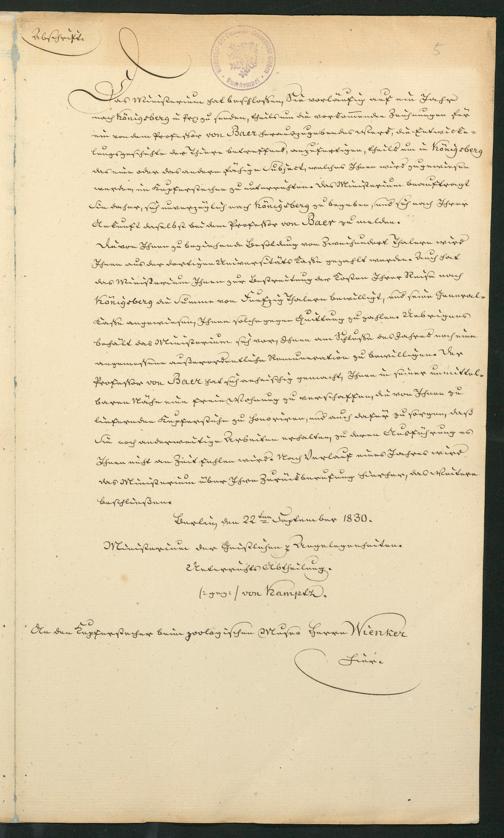 Abschrift.
5
Das Ministerium hat beschlossen, Sie vorläufig auf ein Jahr
nach Königsberg in Pr. zu senden, theils um die vorkommenden Zeichnungen für
ein von dem Professor von Baer herauszugebendes Werk, die Entwicke-
lungsgeschichte der Thiere betreffend, anzufertigen, theils um in Königsberg
das eine oder das andere fähige Subject, welches Ihnen wird zugewiesen
werden, im Kupferstechen zu unterrichten. Das Ministerium beauftragt
Sie daher, sich unverzüglich nach Königsberg zu begeben, und sich nach Ihrer
Ankunft daselbst bei dem Professor von Baer zu melden.
Die von Ihnen zu beziehende Besoldung von Zweihundert Thalern wird
Ihnen aus der dortigen Universitäts Casse gezahlt werden. Auch hat
das Ministerium Ihnen zur Bestreitung der Kosten Ihrer Reise nach
Königsberg die Summe von Funfzig Thalern bewilligt, und seine General-
Casse angewiesen, Ihnen solche gegen Quittung zu zahlen. Uebrigens
behält das Ministerium sich vor, Ihnen am Schlusse des Jahres noch eine
angemessene außerordentliche Remuneration zu bewilligen. Der
Professor von Baer hat sich anheischig gemacht, Ihnen in seiner unmittel-
baren Nähe eine freie Wohnung zu verschaffen, die von Ihnen zu
liefernden Kupferstiche zu honoriren, und auch dafür zu sorgen, daß
Sie noch anderweitige Arbeiten erhalten, zu deren Ausführung es
Ihnen nicht an Zeit fehlen wird. Nach Verlauf eines Jahres wird
das Ministerium über Ihre Zurückberufung hierher, das Weitere
beschließen.
Berlin, den 22ten September 1830.
Ministerium der Geistlichen p Angelegenheiten.
Unterrichts Abtheilung.
(:gez:) von Kamptz.
An den Kupferstecher beim zoologischen Museo Herrn Wienker
hier.